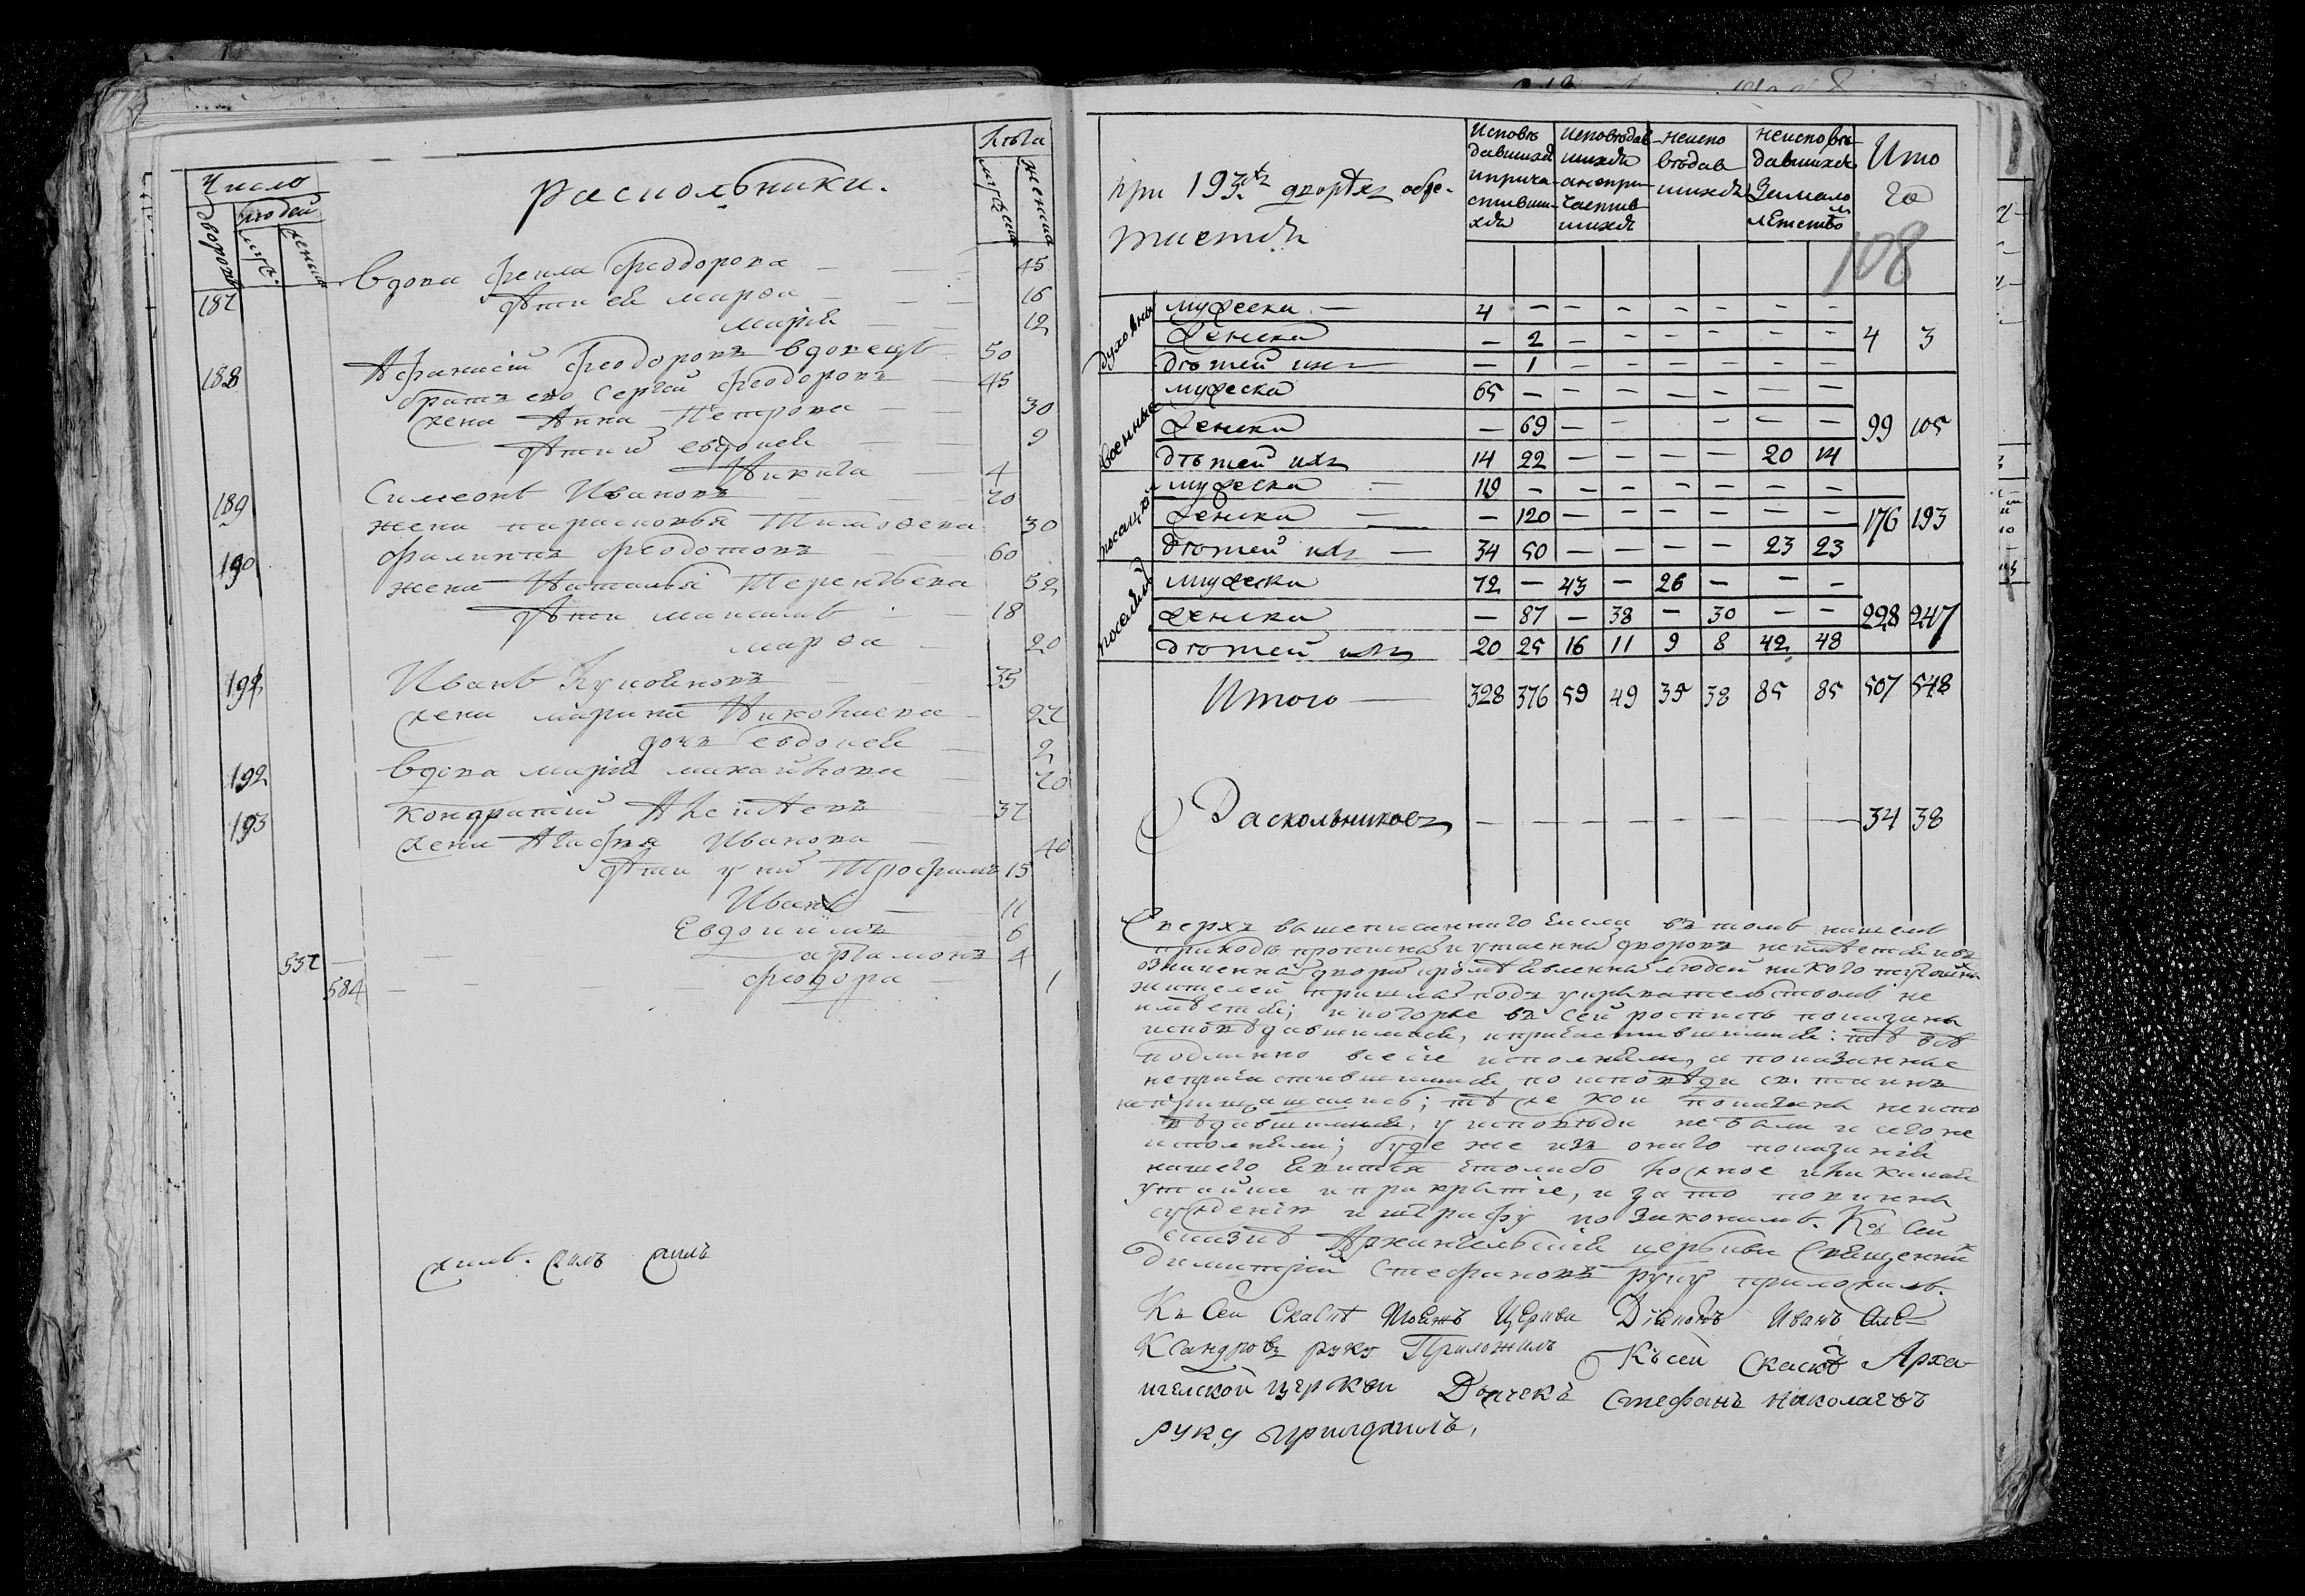 Число
людей
Лѣта
дворовъ
муж.
женска
мужеска
женска
раскольники.
187 вдова Фекла Феодорова — 45
дѣти еѣ марѳа — 16
марія — 12
188 Афанасій Феодоровъ вдовецъ 50
братъ его Сергѣй Феодоровъ 45
жена Анна Петрова — 30
дѣти евдокея — 9
Никита — 4
189 Симеонъ Ивановъ — 70
жена парасковья Тимоѳева 30
190 филиппъ Феодотовъ — 60
жена Наталья Терентьева 52
дѣти — 18
марѳа — 20
191 Иванъ — 35
жена марина Николаева — 27
дочь евдокея — 2
192 вдова марія михайлова — 70
193 Кондратій — 37
жена Агафья Иванова — 40
дѣти у нихъ Трофимъ 15
Иванъ — 11
Евдокимъ — 6
артамонъ 4
557 —
584 — феодора — 1
при 193хъ дворѣхъ обре-
тается
Исповѣ
давшихся
и прича-
стивши-
хся
исповѣдав
шихся
а не при-
частив
шихся
неиспо
вѣдав
шихся
неисповѣ-
давшихся
за мало
лѣтствомъ
Ито
го
108
духовныя
мужеска — 4 — — — — — — —
женска — 2 — — — — — — 4 3
дѣтей ихъ — 1 — — — — — —
военныя
мужеска 65 — — — — — — —
женска — 69 — — — — — 99 105
дѣтей ихъ 14 22 — — — — 20 14
посацкія
мужеска — 119 — — — — — — —
женска — — 120 — — — — — — 176 193
дѣтей ихъ — 34 50 — — — — 23 23
поселяня
мужеска 72 — 43 — 26 — — —
женска — 87 — 38 — 30 — — 228 247
дѣтей ихъ 20 25 16 11 9 8 42 48
Итого — 328 376 59 49 35 38 85 85 507 548
Раскольниковъ — — — — — — — 34 38
Сверхъ вышеписанного числа въ томъ нашемъ
приходѣ дворовъ не имѣется и въ
людей никого
жителей пришлыхъ подъ укрывательствомъ не
имѣется; которые въ сей росписѣ показаны
исповѣдавшимися, и причастившимися: тѣ всѣ
подлинно все сіе исполняли, а показанные
не причастившимися по исповѣди св. таинъ
не причащались; тѣ же кои показаны неиспо
вѣдавшимися, у исповѣди не были и сего не
исполняли; буде же изъ оного показанія
нашего явится что либо ложное или какая
утайка и прикрытіе, и за то повинны
сужденію и штрафу по законамъ. Къ сей
сказкѣ Архангельскія церкви Священникъ
Димитрій Стефановъ руку приложилъ.
Къ Сей Сказкѣ тоежъ Церкви Діяконъ Иванъ Але-
ксандровъ руку Приложилъ Къ сей скаскѣ Арха-
нгелской церкви Дьячекъ Стефанъ Николаевъ
руку приложилъ.